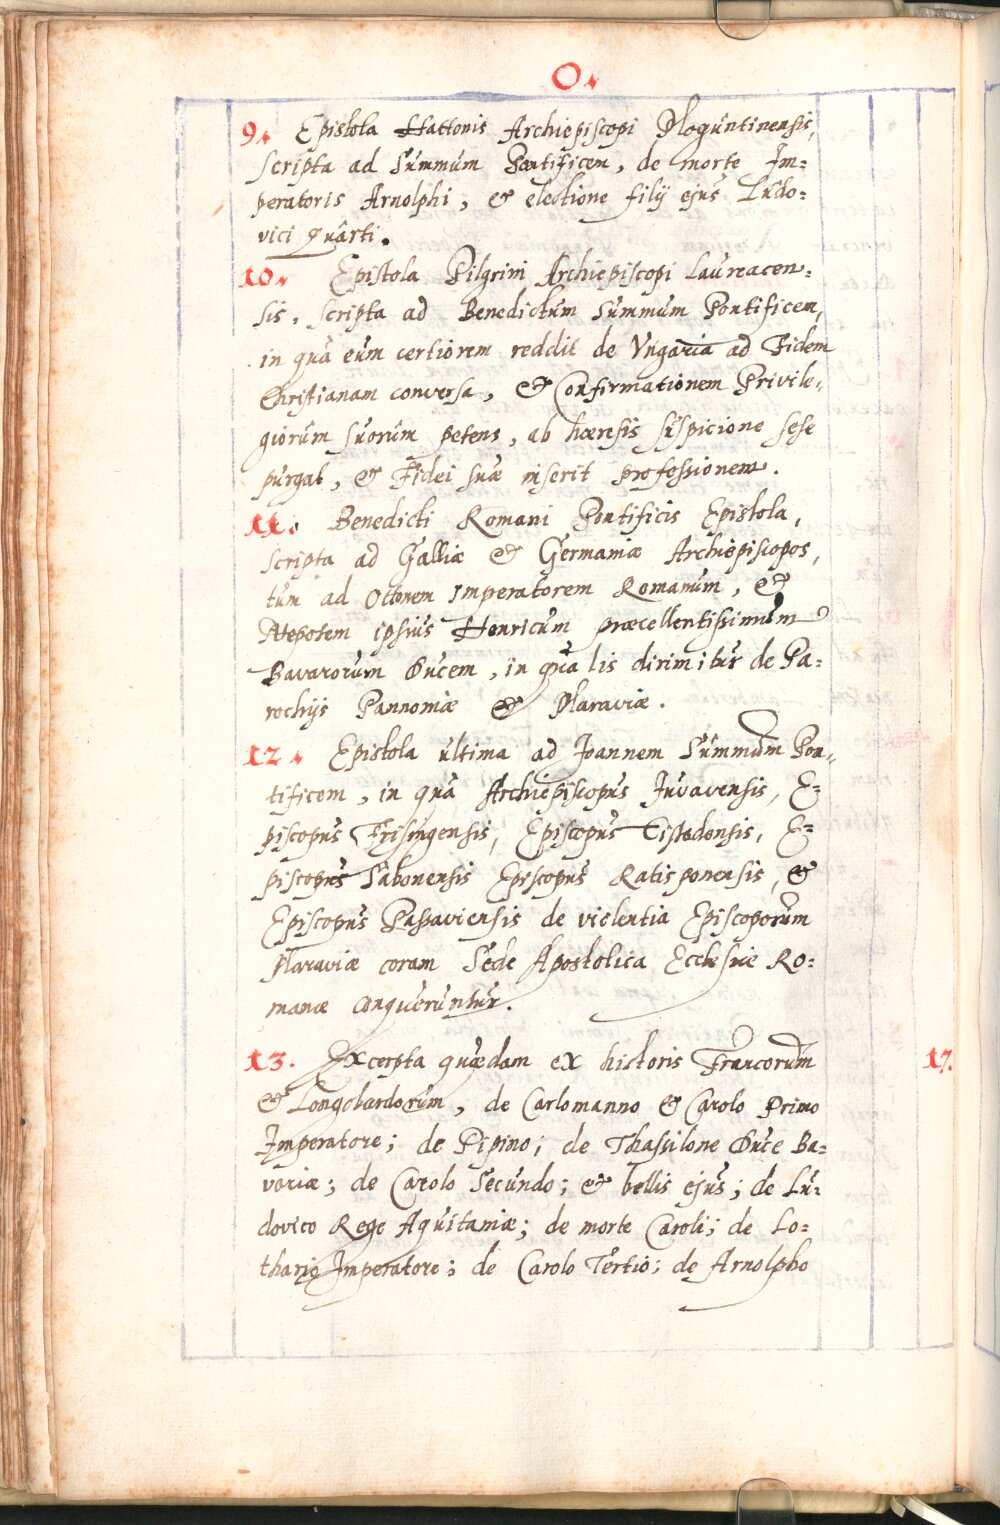 O.
9. Epistola Hattonis Archiepiscopi Moguntinensis,
scripta ad Summum Pontificem, de morte Im=
peratoris Arnolphi, & electione filij ejus Ludo=
vici quarti.
10. Epistola Pilgrini Archiepiscopi Laureacen=
sis, scripta ad Benedictum Summum Pontificem,
in quâ eum certiorem reddit de Vngaria ad Fidem
Christianam conversa, & Confirmationem Privile=
giorum suorum petens, ab hæresis suspicione sese
purgat, & Fidei suæ inserit professionem.
11. Benedicti Romani Pontificis Epistola,
scripta ad Galliæ & Germaniæ Archiepiscopos,
tum ad Ottonem Imperatorem Romanum, &
Nepotem ipsius Henricum præcellentissimum
Bavarorum Ducem, in qua lis dirimitur de Pa=
rochijs Pannoniæ & Maraviæ.
12. Epistola ultima ad Joannem Summum Pon=
tificem, in quâ Archiepiscopus Juvavensis, E=
piscopus Frisingensis, Episcopus Eistedensis, E=
piscopus Sabonensis Episcopus Ratisponensis, &
Episcopus Passaviensis de violentia Episcoporum
Maraviæ coram Sede Apostolica Ecclesiæ Ro=
manæ conqueruntur.
13. Excerpta quædam ex historis Francorum
& Longobardorum, de Carlomanno & Carolo Primo
Imperatore; de Pipino; de Thassilone Duce Ba=
variæ; de Carolo Secundo; & bellis ejus; de Lu=
dovico Rege Aquitaniæ; de morte Caroli; de Lo=
thario Imperatore; de Carolo Tertio; de Arnolpho
17.